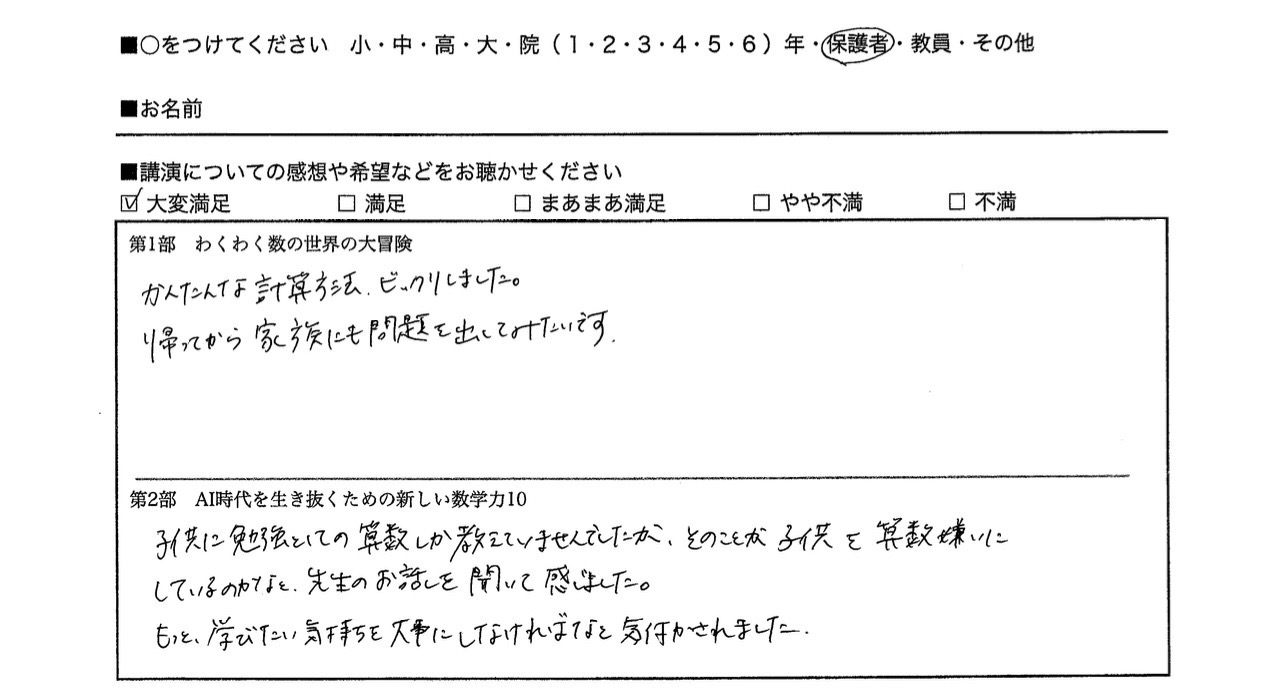 ■○をつけてください 小・中・高・大・院（1・2・3・4・5・6）年・保護者・教員・その他
■お名前
■講演についての感想や希望などをお聴かせください
☑大変満足 □満足 □まあまあ満足 □やや不満 □不満
第1部 わくわく数の世界の大冒険
かんたんな計算方法、ビックリしました。
帰ってから家族にも問題を出してみたいです.
第2部 AI時代を生き抜くための新しい数学力10
子供に勉強としての算数しか教えていませんでしたが、そのことが子供を算数嫌いに
しているのかなと、先生のお話しを聞いて感じました。
もっと、学びたい気持ちを大事にしなければなと気付かされました.